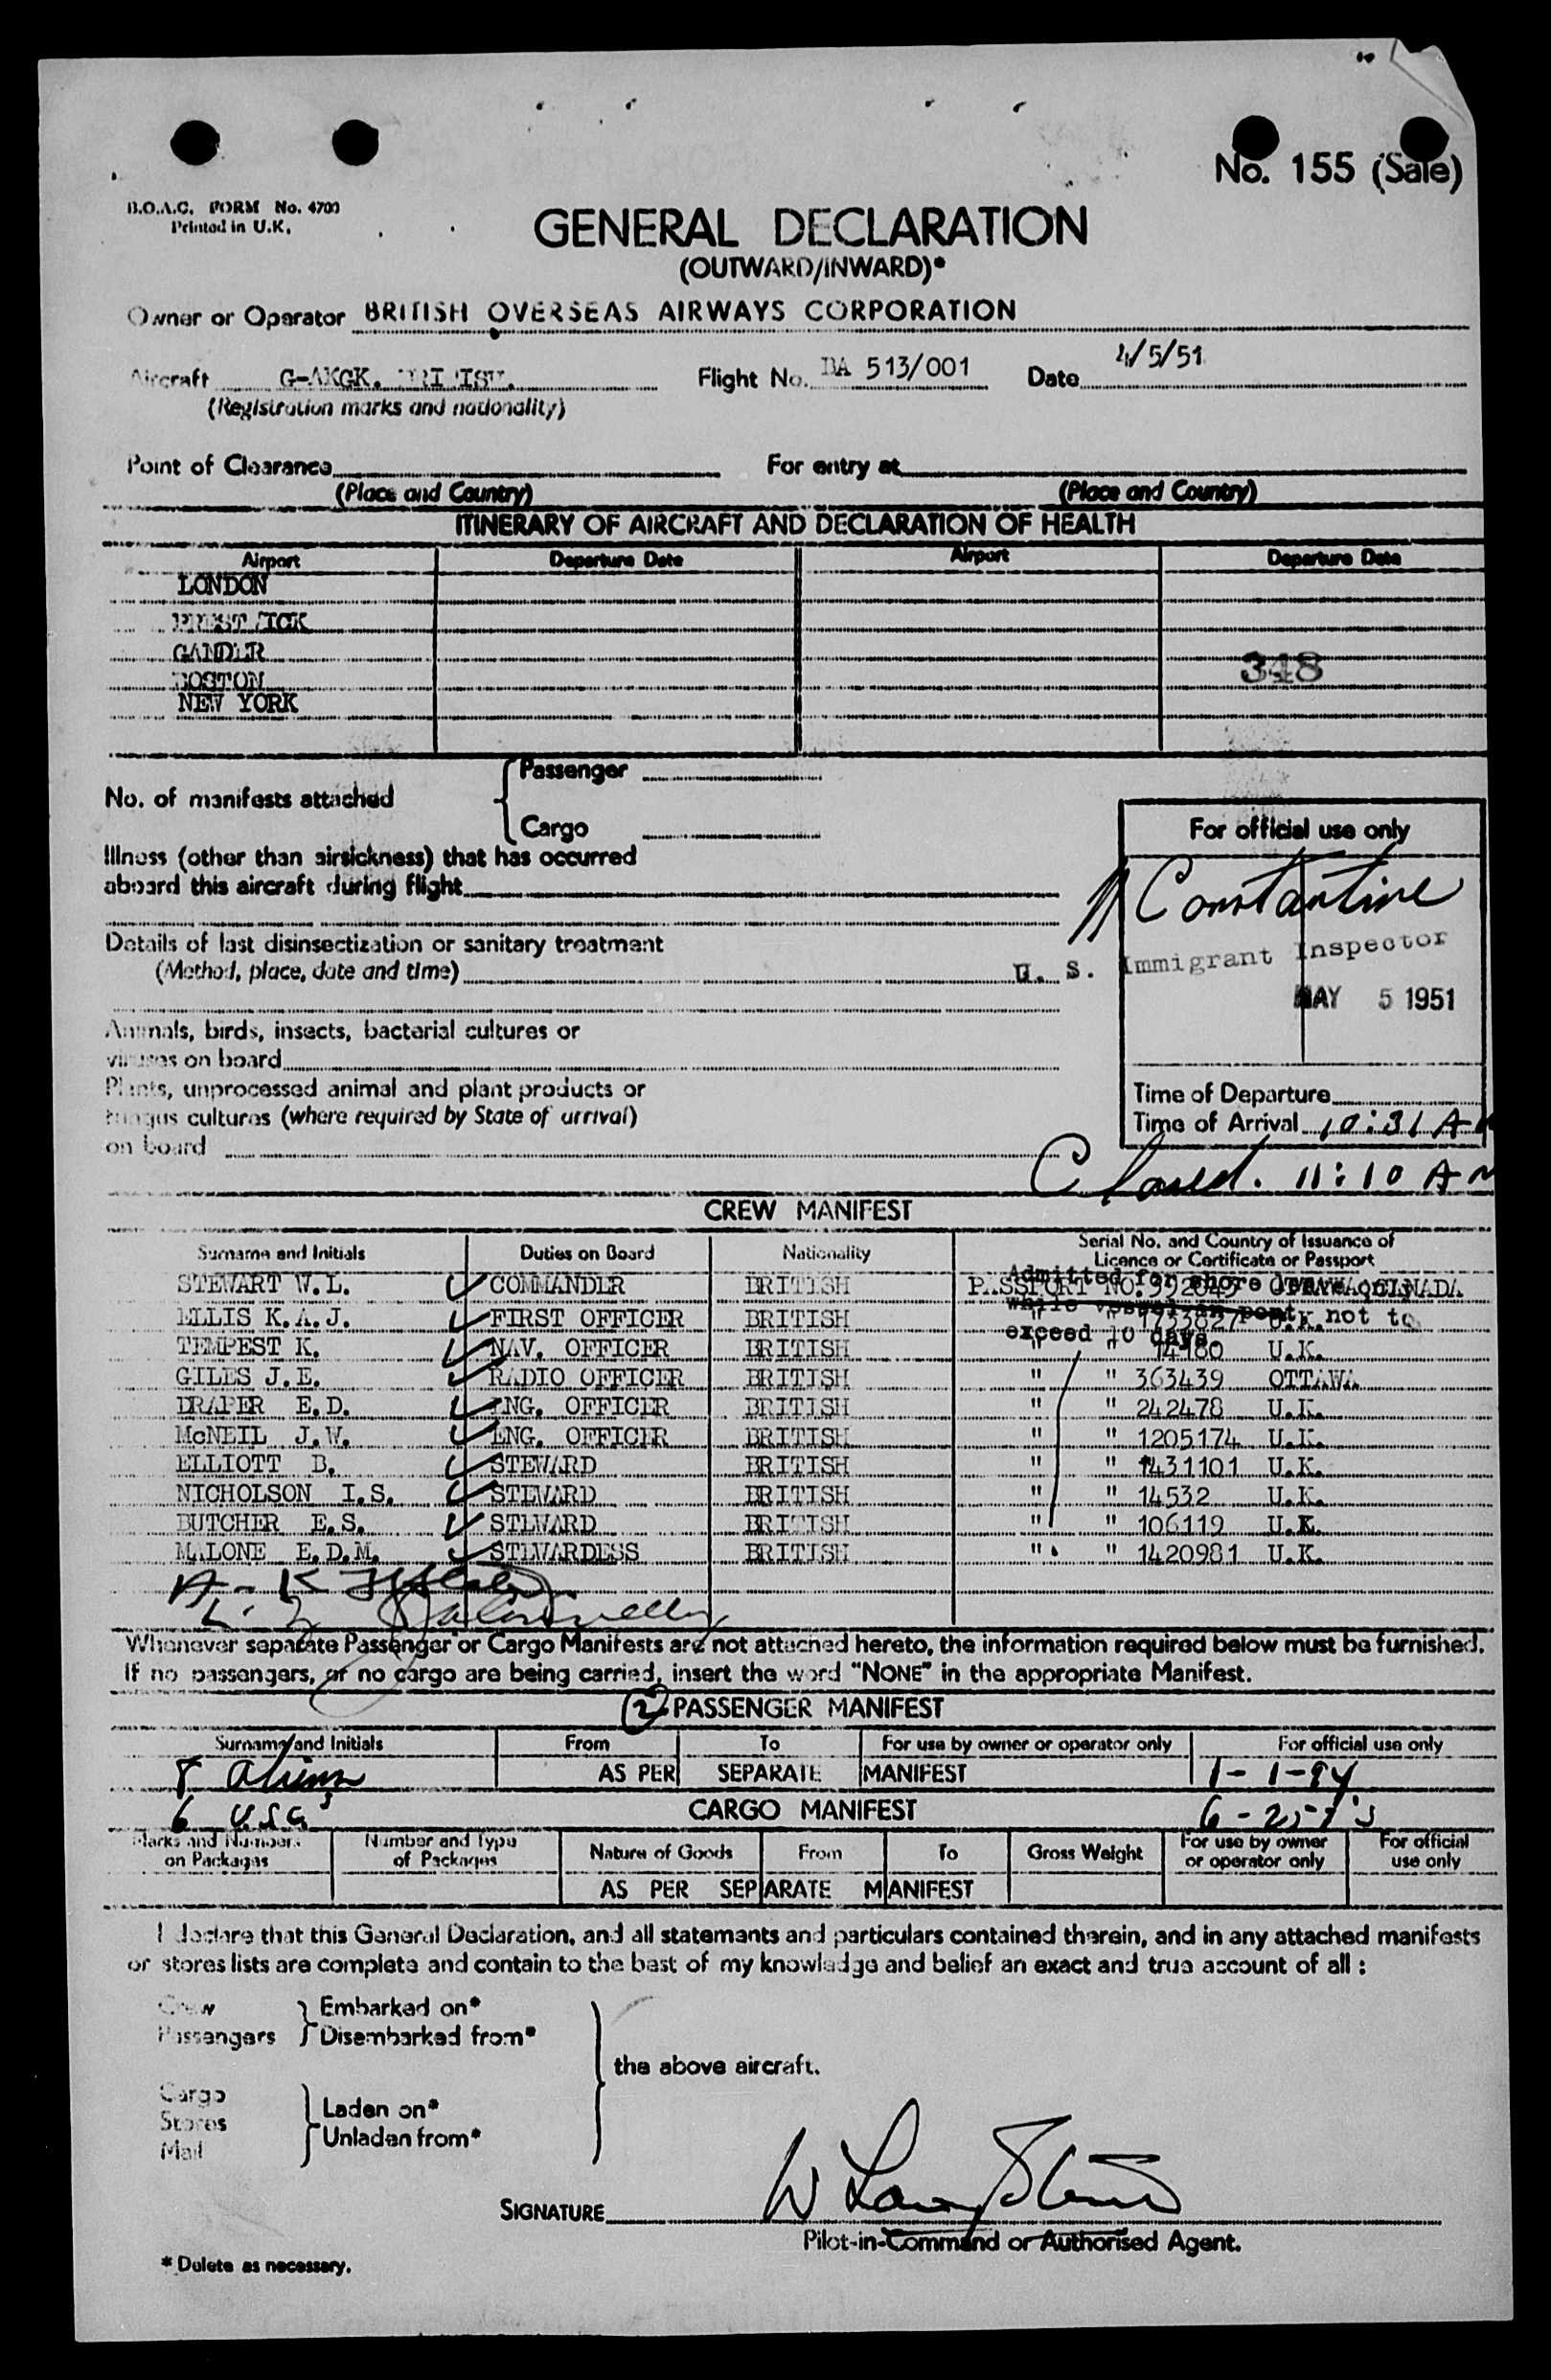 No. 155 (Sale)
B.O.A.C. FORM No. 4700
Printed in U.K.
GENERAL DECLARATION
(OUTWARD/INWARD)*
Owner or Operator BRITISH OVERSEAS AIRWAYS CORPORATION
Aircraft G-AKGK. BRITISH. Flight No. BA 513/001 Date 4/5/51
(Registration marks and nationality)
Point of Clearance For entry at
(Place and Country) (Place and Country)
ITINERARY OF AIRCRAFT AND DECLARATION OF HEALTH
Airport Departure Date Airport Departure Date
LONDON
PRESTWICK
GANDER
348
BOSTON
NEW YORK
No. of manifests attached
Passenger
Cargo
For official use only
Illness (other than airsickness) that has occurred
aboard this aircraft during flight
Constantine
Details of last disinsectization or sanitary treatment
(Method, place, date and time)
U. S. Immigrant Inspector
MAY 5 1951
Animals, birds, insects, bacterial cultures or
viruses on board
Plants, unprocessed animal and plant products or
fungus cultures (where required by State of arrival)
on board
Time of Departure
Time of Arrival 10:31 AM
Closed. 11:10 AM
CREW MANIFEST
Surname and Initials Duties on Board Nationality Serial No. and Country of Issuance of
Licence or Certificate or Passport
Admitted for shore leave only
while vessel in port, not to
exceed 10 days
STEWART W.L. COMMANDER BRITISH PASSPORT NO. OTTAWA CANADA
ELLIS K.A.J. FIRST OFFICER BRITISH " " 1733827 U.K.
TEMPEST K. NAV. OFFICER BRITISH " " 14180 U.K.
GILES J.E. RADIO OFFICER BRITISH " " 363439 OTTAWA
DRAPER E.D. ENG. OFFICER BRITISH " " 242478 U.K.
McNEIL J.W. ENG. OFFICER BRITISH " " 1205174 U.K.
ELLIOTT B. STEWARD BRITISH " " 1431101 U.K.
NICHOLSON I.S. STEWARD BRITISH " " 14532 U.K.
BUTCHER E.S. STEWARD BRITISH " " 106119 U.K.
MALONE E.D.M. STEWARDESS BRITISH " " 1420981 U.K.
Whenever separate Passenger or Cargo Manifests are not attached hereto, the information required below must be furnished.
If no passengers, or no cargo are being carried, insert the word "NONE" in the appropriate Manifest.
(2) PASSENGER MANIFEST
Surname and Initials From To For use by owner or operator only For official use only
8 Aliens AS PER SEPARATE MANIFEST 1-1-94
6 USC's CARGO MANIFEST
Marks and Numbers on Packages Number and Type of Packages Nature of Goods From To Gross Weight For use by owner or operator only For official use only
AS PER SEPARATE MANIFEST
I declare that this General Declaration, and all statements and particulars contained therein, and in any attached manifests
or stores lists are complete and contain to the best of my knowledge and belief an exact and true account of all :
Crew Embarked on*
Passengers Disembarked from*
the above aircraft.
Cargo
Stores
Mail
Laden on*
Unladen from*
SIGNATURE
Pilot-in-Command or Authorised Agent.
* Delete as necessary.